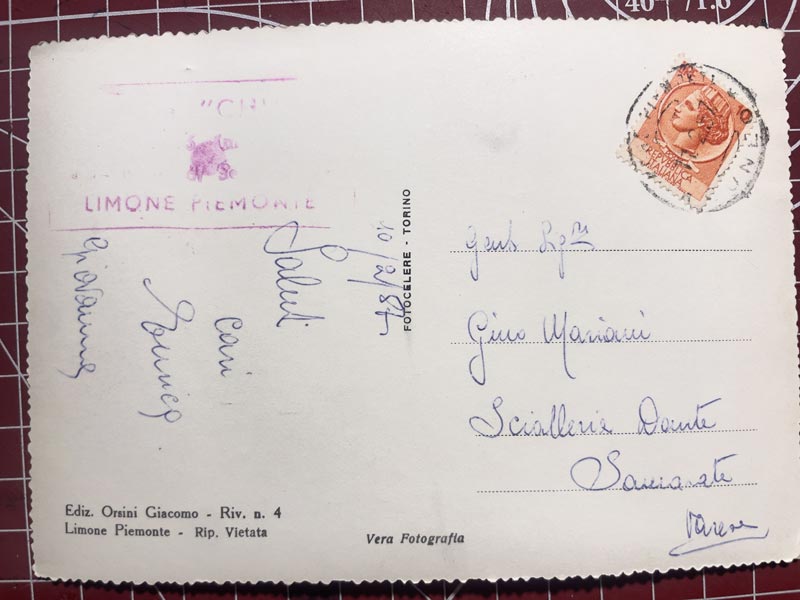 LIMONE PIEMONTE
10/2/57
Saluti
cari
Enrico
Giovanna
FOTOCELERE - TORINO
Gent. Sig.ri
Gino Mariani
Scialleria Dante
Samarate
Varese
Ediz. Orsini Giacomo - Riv. n. 4
Limone Piemonte - Rip. Vietata
Vera Fotografia
REPUBBLICA
ITALIANA
40